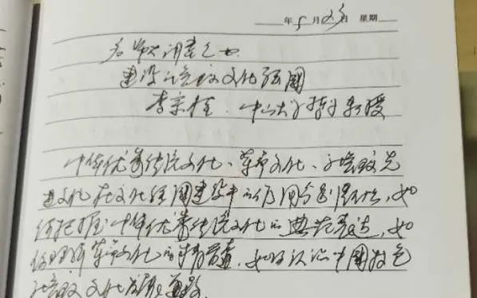 年5月23日 星期
名师大讲堂之七
建设社会主义文化强国
李宗桂 中山大学哲学系教授
中华优秀传统文化、革命文化、社会主义先
进文化在文化强国建设中的作用与重要性，如
何把握中华优秀传统文化的典范表达，如
何理解革命文化的精神富矿，如何认识中国特色
社会主义文化发展道路